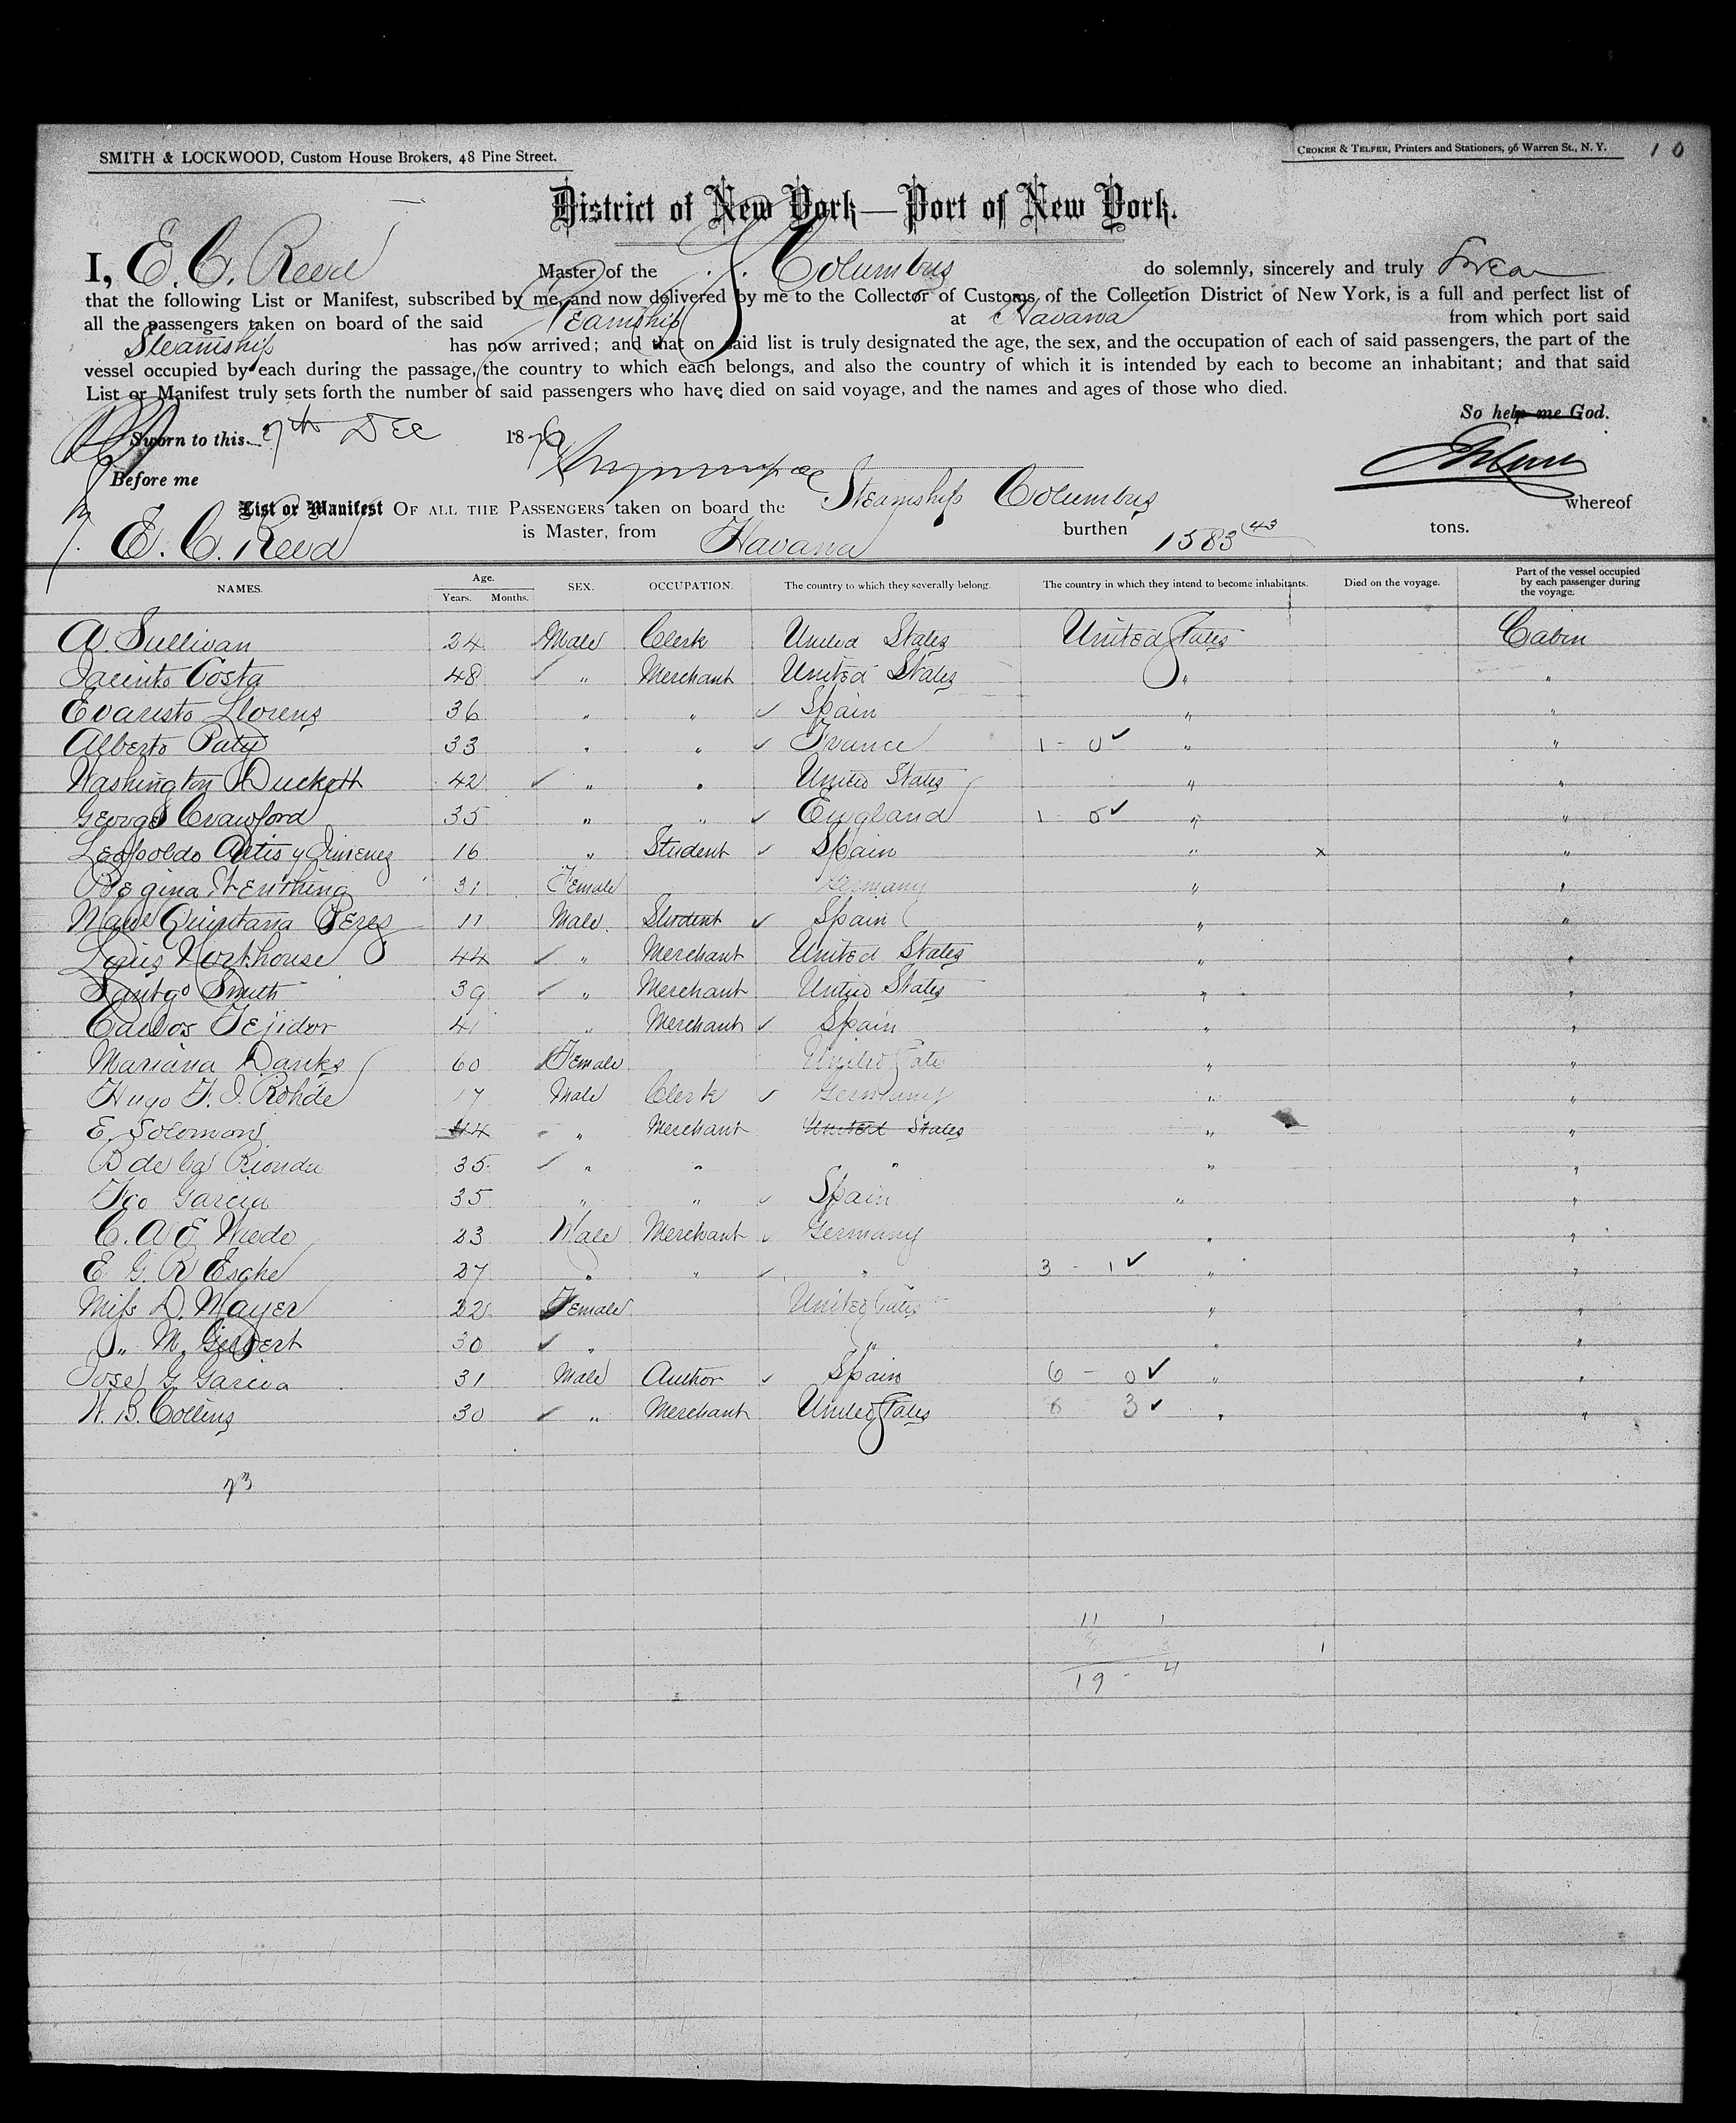 SMITH & LOCKWOOD, Custom House Brokers, 48 Pine Street.
CROKER & TELFER, Printers and Stationers, 96 Warren St., N. Y.
10
District of New York—Port of New York.
I, E. C. Reed Master of the S. S. Columbus do solemnly, sincerely and truly Swear
that the following List or Manifest, subscribed by me, and now delivered by me to the Collector of Customs of the Collection District of New York, is a full and perfect list of
all the passengers taken on board of the said Steamship at Havana from which port said
Steamship has now arrived; and that on said list is truly designated the age, the sex, and the occupation of each of said passengers, the part of the
vessel occupied by each during the passage, the country to which each belongs, and also the country of which it is intended by each to become an inhabitant; and that said
List or Manifest truly sets forth the number of said passengers who have died on said voyage, and the names and ages of those who died.
So help me God.
Sworn to this 7th Dec 18
Before me
List or Manifest OF ALL THE PASSENGERS taken on board the Steamship Columbus whereof
E. C. Reed is Master, from Havana burthen 1583 43 tons.
NAMES. Age. Years. Months. SEX. OCCUPATION. The country to which they severally belong. The country in which they intend to become inhabitants. Died on the voyage. Part of the vessel occupied by each passenger during the voyage.
A. Sullivan 24 Male Clerk United States United States Cabin
Jacinto Costa 48 ✓ " Merchant United States " "
Evaristo Llorens 36 " " ✓ Spain " "
Alberto Paty 33 " " ✓ France 1 - 0 ✓ " "
Washington Duckett 42 ✓ " " United States " "
George Crawford 35 " " ✓ England 1 0 ✓ " "
Leopoldo Artis y Jimenez 16 " Student ✓ Spain " x "
Regina 31 Female Germany " "
Quintana Peres 11 Male Student ✓ Spain " "
Louis Northouse 44 ✓ " Merchant United States " "
Santgo Smith 39 ✓ " Merchant United States " "
Carlos Tejidor 41 " Merchant ✓ Spain " "
Mariana Danks 60 Female United States " "
Hugo F. J. Rohde 17 Male Clerk ✓ Germany " "
E. Solomon 44 " Merchant United States " "
B de la Rionda 35 ✓ " " " " "
Fco Garcia 35 " " ✓ Spain " "
C. A. E. Wiede 23 Male Merchant ✓ Germany " "
E G. R Esche 27 " " ✓ " 3 - 1 ✓ " "
Miss D. Mayer 22 Female United States " "
" M. Gilbert 30 ✓ " " " "
Jose G. Garcia 31 Male Author ✓ Spain 6 - 0 ✓ " "
W. B. Collins 30 ✓ " Merchant United States 8 3 ✓ " "
23
11 1
8 3 1
19 - 4